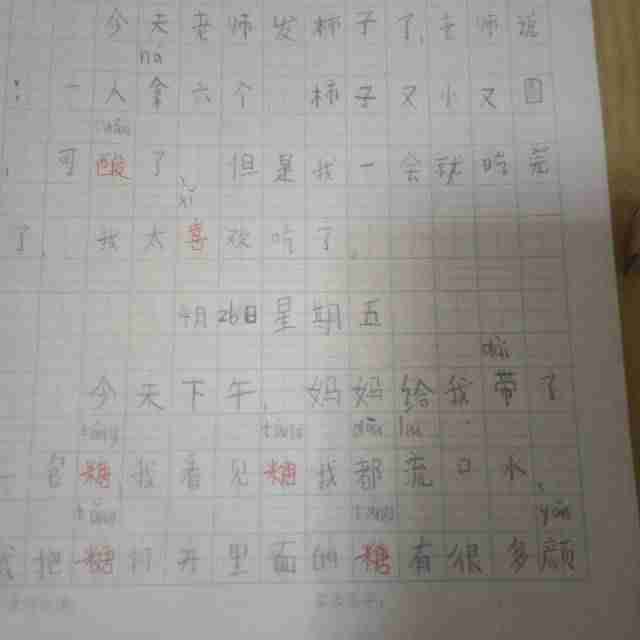 今天老师发柿子了,老师说
ná
:一人拿六个 柿子又小又圆
suān
可酸了 但是我一会就吃完
xǐ
了,我太喜欢吃了。
4月26日星期五
dài
今天下午,妈妈给我带了
táng táng dōu liú
一包糖我看见糖我都流口水,
táng táng yán
我把糖打开里面的糖有很多颜